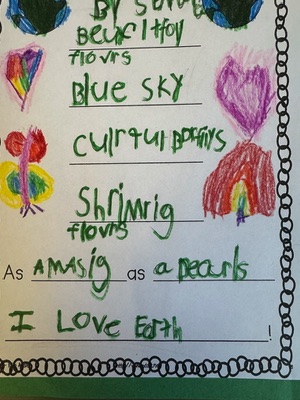 Beurltfoy
flovrs
Blue sky
culrful Bortfiys
Shrimrig
flovrs
As Amasig as a pearls
I Love Earth!